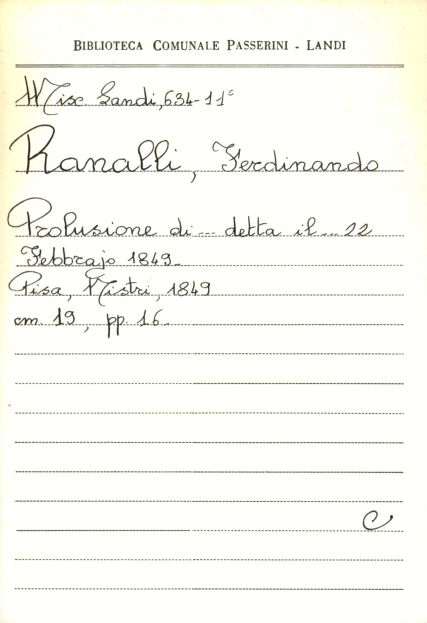 BIBLIOTECA COMUNALE PASSERINI - LANDI
Misc Landi, 634-11°
Ranalli, Ferdinando
Prolusione di ... detta il ... 22
Febbrajo 1849.
Pisa, Nistri, 1849
cm. 19, pp. 16.
C